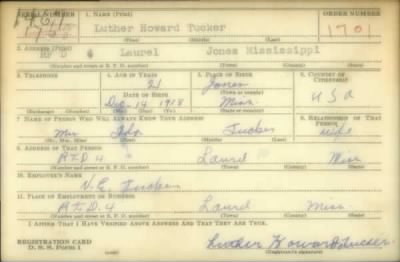 SERIAL NUMBER 1. NAME (Print) ORDER NUMBER
Luther Howard Tucker 1701
(First) (Middle) (Last)
2. ADDRESS (Print)
RFD 4 Laurel Jones Mississippi
(Number and street or R. F. D. number) (Town) (County) (State)
3. TELEPHONE 4. AGE IN YEARS 5. PLACE OF BIRTH 6. COUNTRY OF CITIZENSHIP
21 Jones
DATE OF BIRTH
Dec. 14 1918 Miss. USA
(Exchange) (Number) (Mo.) (Day) (Yr.) (State or country)
7. NAME OF PERSON WHO WILL ALWAYS KNOW YOUR ADDRESS 8. RELATIONSHIP OF THAT PERSON
Mrs Ida Tucker wife
(Mr., Mrs., Miss) (First) (Middle) (Last)
9. ADDRESS OF THAT PERSON
R.F.D. 4 Laurel Miss
(Number and street or R. F. D. number) (Town) (County) (State)
10. EMPLOYER'S NAME
Tucker
11. PLACE OF EMPLOYMENT OR BUSINESS
R.F.D. 4 Laurel Miss.
(Number and street or R. F. D. number) (Town) (County) (State)
I AFFIRM THAT I HAVE VERIFIED ABOVE ANSWERS AND THAT THEY ARE TRUE.
REGISTRATION CARD
D. S. S. Form 1
Luther Howard Tucker
(Registrant's signature)